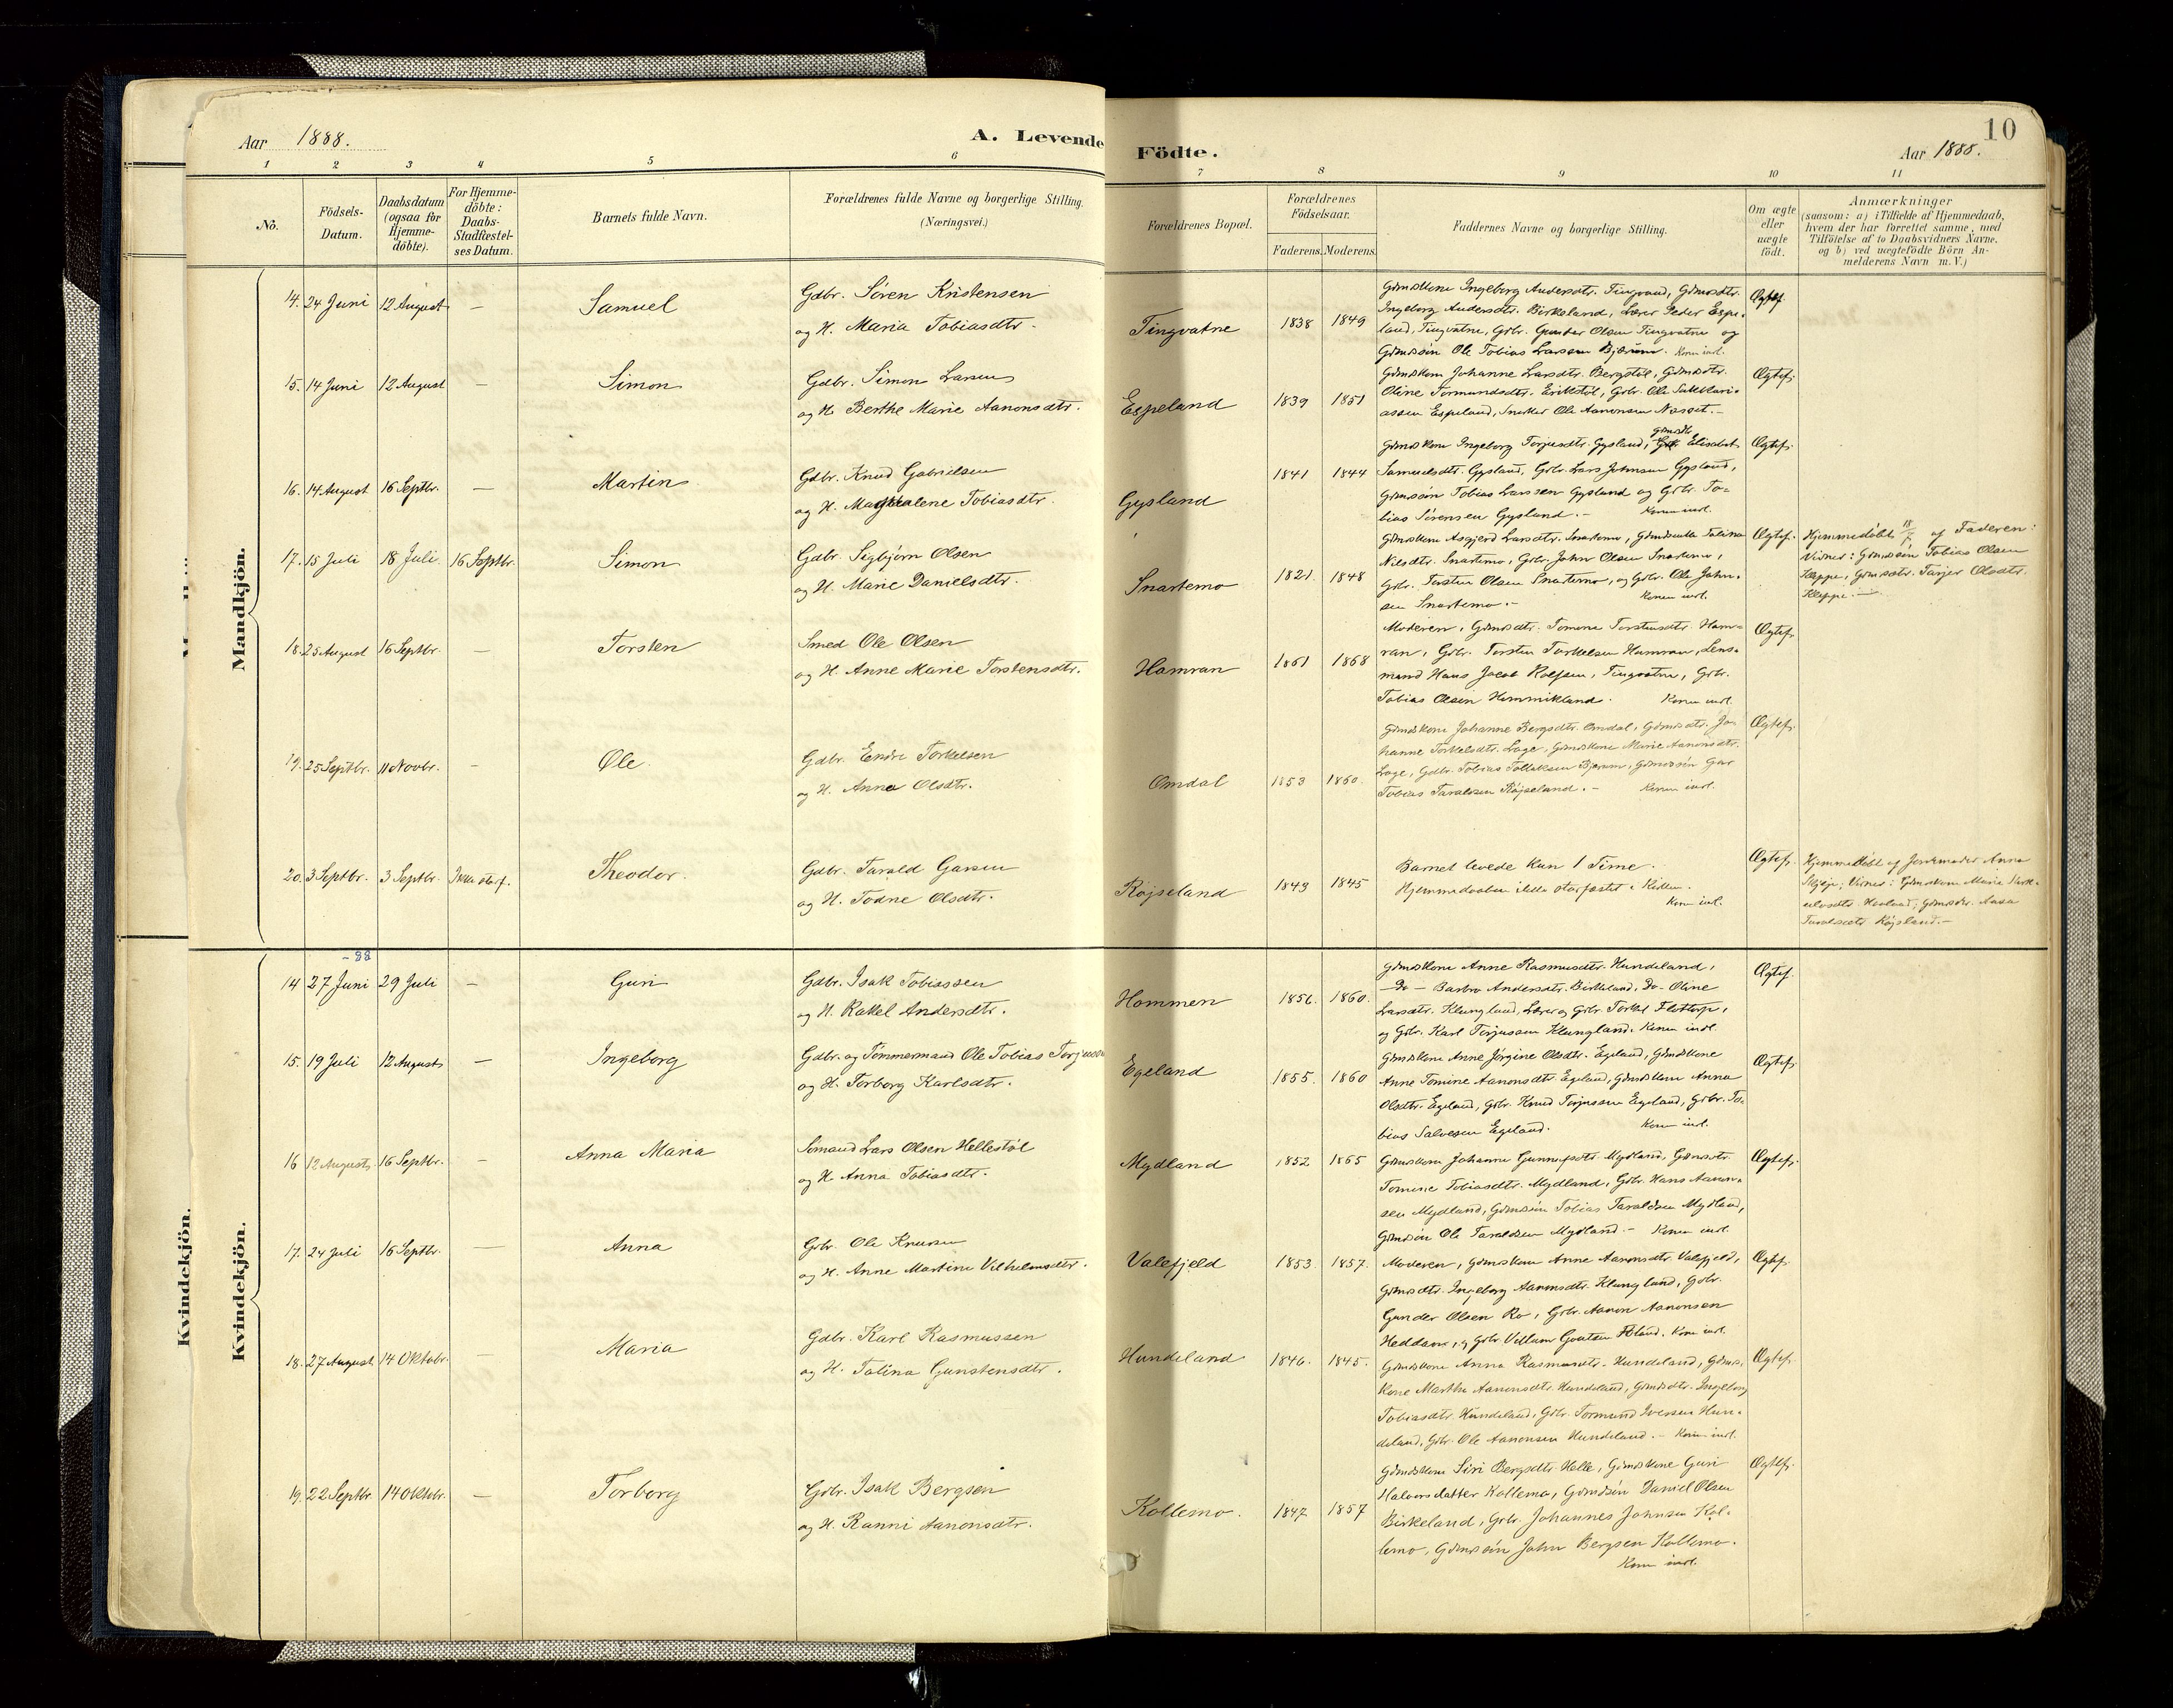 10
Aar 1888.
A. Levende Födte.
Aar 1888.
1 2 3 4 5 6 7 8 9 10 11
No.
Födsels-Datum.
Daabsdatum (ogsaa for Hjemme-döbte).
For Hjemme-döbte: Daabs-Stadfæstel-ses Datum.
Barnets fulde Navn.
Forældrenes fulde Navne og borgerlige Stilling.
(Næringsvei.)
Forældrenes Bopæl.
Forældrenes Födselsaar.
Faderens. Moderens.
Faddernes Navne og borgerlige Stilling.
Om ægte eller uægte födt.
Anmærkninger
(saasom: a) i Tilfælde af Hjemmedaab,
hvem der har forrettet samme, med
Tilföielse af to Daabsvidners Navne.
og b) ved uægtefödte Börn An-
melderens Navn m. V.)
Mandkjön.
14. 24 Juni 12 August — Samuel
Gdbr. Sören Kristensen
og H. Maria Tobiasdtr.
Tingvatne 1838 1849
Gdmdskone Ingeborg Andersdtr. Tingvatne, Gdmdsdtr.
Ingeborg Andersdtr. Birkeland, Lærer Peder Espe-
land, Tingvatne, Gdbr. Gunder Olsen Tingvatne og
Gdmdssön Ole Tobias Larssen Bjærum. Konen indl.
Ægtef.
15. 14 Juni 12 August — Simon
Gdbr. Simon Larsen
og H. Berthe Marie Aanonsdtr.
Espeland 1839 1851
Gdmdskone Johanne Larsdtr. Bergstöl, Gdmdsdtr.
Oline Tormundsdtr. Erikstöl, Gdbr. Ole Sakkari-
assen Espeland, Snekker Ole Aanonsen Næset.—
Ægtef.
16. 14 August 16 Septbr. — Martin
Gdbr. Knud Gabrielsen
og H. Magdalene Tobiasdtr.
Gysland 1841 1844
Gdmdskone Ingeborg Torjusdtr. Gysland, Gdmdsdtr. Elisabet
Samuelsdtr. Gysland, Gdbr. Lars Johnsen Gysland,
Gdmdssön Tobias Larssen Gysland og Gdbr. To-
bias Sörensen Gysland.— Konen indl.
Ægtef.
17. 15 Juli 18 Juli 16 Septbr. Simon
Gdbr. Sigbjörn Olsen
og H. Marie Danielsdtr.
Snartemo 1821 1848
Gdmdskone Asgjerd Larsdtr. Snartemo, Talina
Nilsdtr. Snartemo, Gdbr. John Olsen Snartemo,
Gdbr. Torsten Olsen Snartemo, og Gdbr. Ole John-
sen Snartemo.— Konen indl.
Ægtef.
Hjemmedöbt 18/7 af Faderen:
Vidner: Gdmdssön Tobias Olsen
Kleppe, Gdmdsdtr. Tarjer Olsdtr.
Kleppe.—
18. 25 August 16 Septbr. — Torsten
Smed Ole Olsen
og H. Anne Marie Torstensdtr.
Hamran 1861 1868
Moderen, Gdmdsdtr. Tomine Torstensdtr. Ham-
ran, Gdbr. Torsten Torkelsen Hamran, Lens-
mand Hans Jacob Rolfsen, Tingvatne, Gdbr.
Tobias Olsen Hemmikland. Konen indl.
Ægtef.
19. 25 Septbr. 11 Novbr. — Ole.
Gdbr. Endre Torkelsen
og H. Anna Olsdtr.
Omdal 1853 1860.
Gdmdskone Johanne Bergsdtr. Omdal, Gdmdsdtr. Jo-
hanne Torkelsdtr. Lage, Gdmdskone Marie Aanonsdtr.
Lage, Gdbr. Tobias Bjerum, Gdmdssön
Tobias Taraldsen Röjseland.— Konen indl.
Ægtef.
20. 3 Septbr. 3 Septbr. Ikke stadf. Theodor.
Gdbr. Tarald Garsen
og H. Todne Olsdtr.
Röjseland 1843 1845
Barnet levede kun 1 Time.
Hjemmedaaben ikke stadfæstet i Kirken.
Konen indl.
Ægtef.
Hjemmedöbt af Jordmoder Anna
Vidner: Gdmdskone Marie
Gdmdsdtr. Aasa
Taraldsdtr. Röjsland.—
Kvindekjön.
-88
14 27 Juni 29 Juli — Guri
Gdbr. Isak Tobiassen
og H. Rakel Andersdtr.
Hommen 1856. 1860.
Gdmdskone Anne Rasmusdtr. Hundeland,
—Do— Barbro Andersdtr. Birkeland, Do- Oline
Larsdtr. Klungland, Lærer og Gdbr. Torkel Flottorp,
og Gdbr. Karl Torjussen Klungland. Konen indl.
Ægtef.
15. 19 Juli 12 August — Ingeborg
Gdbr. og Tömmermand Ole Tobias Torjussen
og H. Torborg Karlsdtr.
Egeland 1855. 1860
Gdmdskone Anne Jörgine Olsdtr. Egeland, Gdmdskone
Anne Tomine Aanonsdtr. Egeland, Gdmdskone Anna
Olsdtr. Egeland, Gdbr. Knud Torjussen Egeland, Gdbr. To-
bias Salvesen Egeland. Konen indl.
Ægtef.
16 12 August 16 Septbr. — Anna Maria
Sömand Lars Olsen Hellestöl
og H. Anna Tobiasdtr.
Mydland 1852 1865
Gdmdskone Johanne Gunnufsdtr. Mydland, Gdmdsdtr.
Tomine Tobiasdtr. Mydland, Gdbr. Hans Aanon-
sen Mydland, Gdmdssön Tobias Taraldsen Mydland,
Gdmdssön Ole Taraldsen Mydland.— Konen indl.
Ægtef.
17. 24 Juli 16 Septbr. — Anna
Gdbr. Ole Knudsen
og H. Anne Martine Vilhelmsdtr.
Valefjeld 1853. 1857.
Moderen, Gdmdskone Anne Aanonsdtr. Valefjeld,
Gdmdsdtr. Ingeborg Aanonsdtr. Klungland, Gdbr.
Gunder Olsen Ro, Gdbr. Aanon Aanonsen
Heddan, og Gdbr. Villum Konen indl.
Ægtef.
18. 27 August 14 Oktobr. — Maria
Gdbr. Karl Rasmussen
og H. Talina Gunstensdtr.
Hundeland 1846. 1845.
Gdmdskone Anna Rasmusdtr. Hundeland, Gdmds-
kone Marthe Aanonsdtr. Hundeland, Gdmdsdtr. Ingeborg
Tobiasdtr. Hundeland, Gdbr. Tormund Iversen Hun-
deland, Gdbr. Ole Aanonsen Hundeland.— Konen indl.
Ægtef.
19. 22 Septbr. 14 Oktobr. — Torborg
Gdbr. Isak Bergsen
og H. Ranni Aanonsdtr.
Kollemo. 1847 1857
Gdmdskone Siri Bergsdtr. Helle, Gdmdskone Guri
Halvorsdatter Kollemo, Gdmdssön Daniel Olsen
Birkeland, Gdbr. Johannes Johnsen Kol-
lemo, Gdmdssön John Bergsen Kollemo.
Konen indl.
Ægtef.
Kvindekjön.